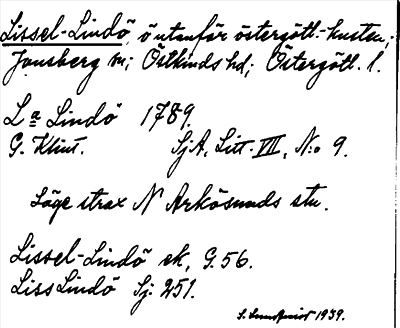 Lissel-Lindö, ö utanför östergötl.-kusten;
Jonsberg sn; Östkinds hd; Östergötl. l.
La Lindö 1789.
G. Klint. SjA, Litt. VII, N:o 9.
Läge strax N Arkösunds stn.
Lissel-Lindö ek, G. 56.
Liss Lindö Sj. 251.
1939.